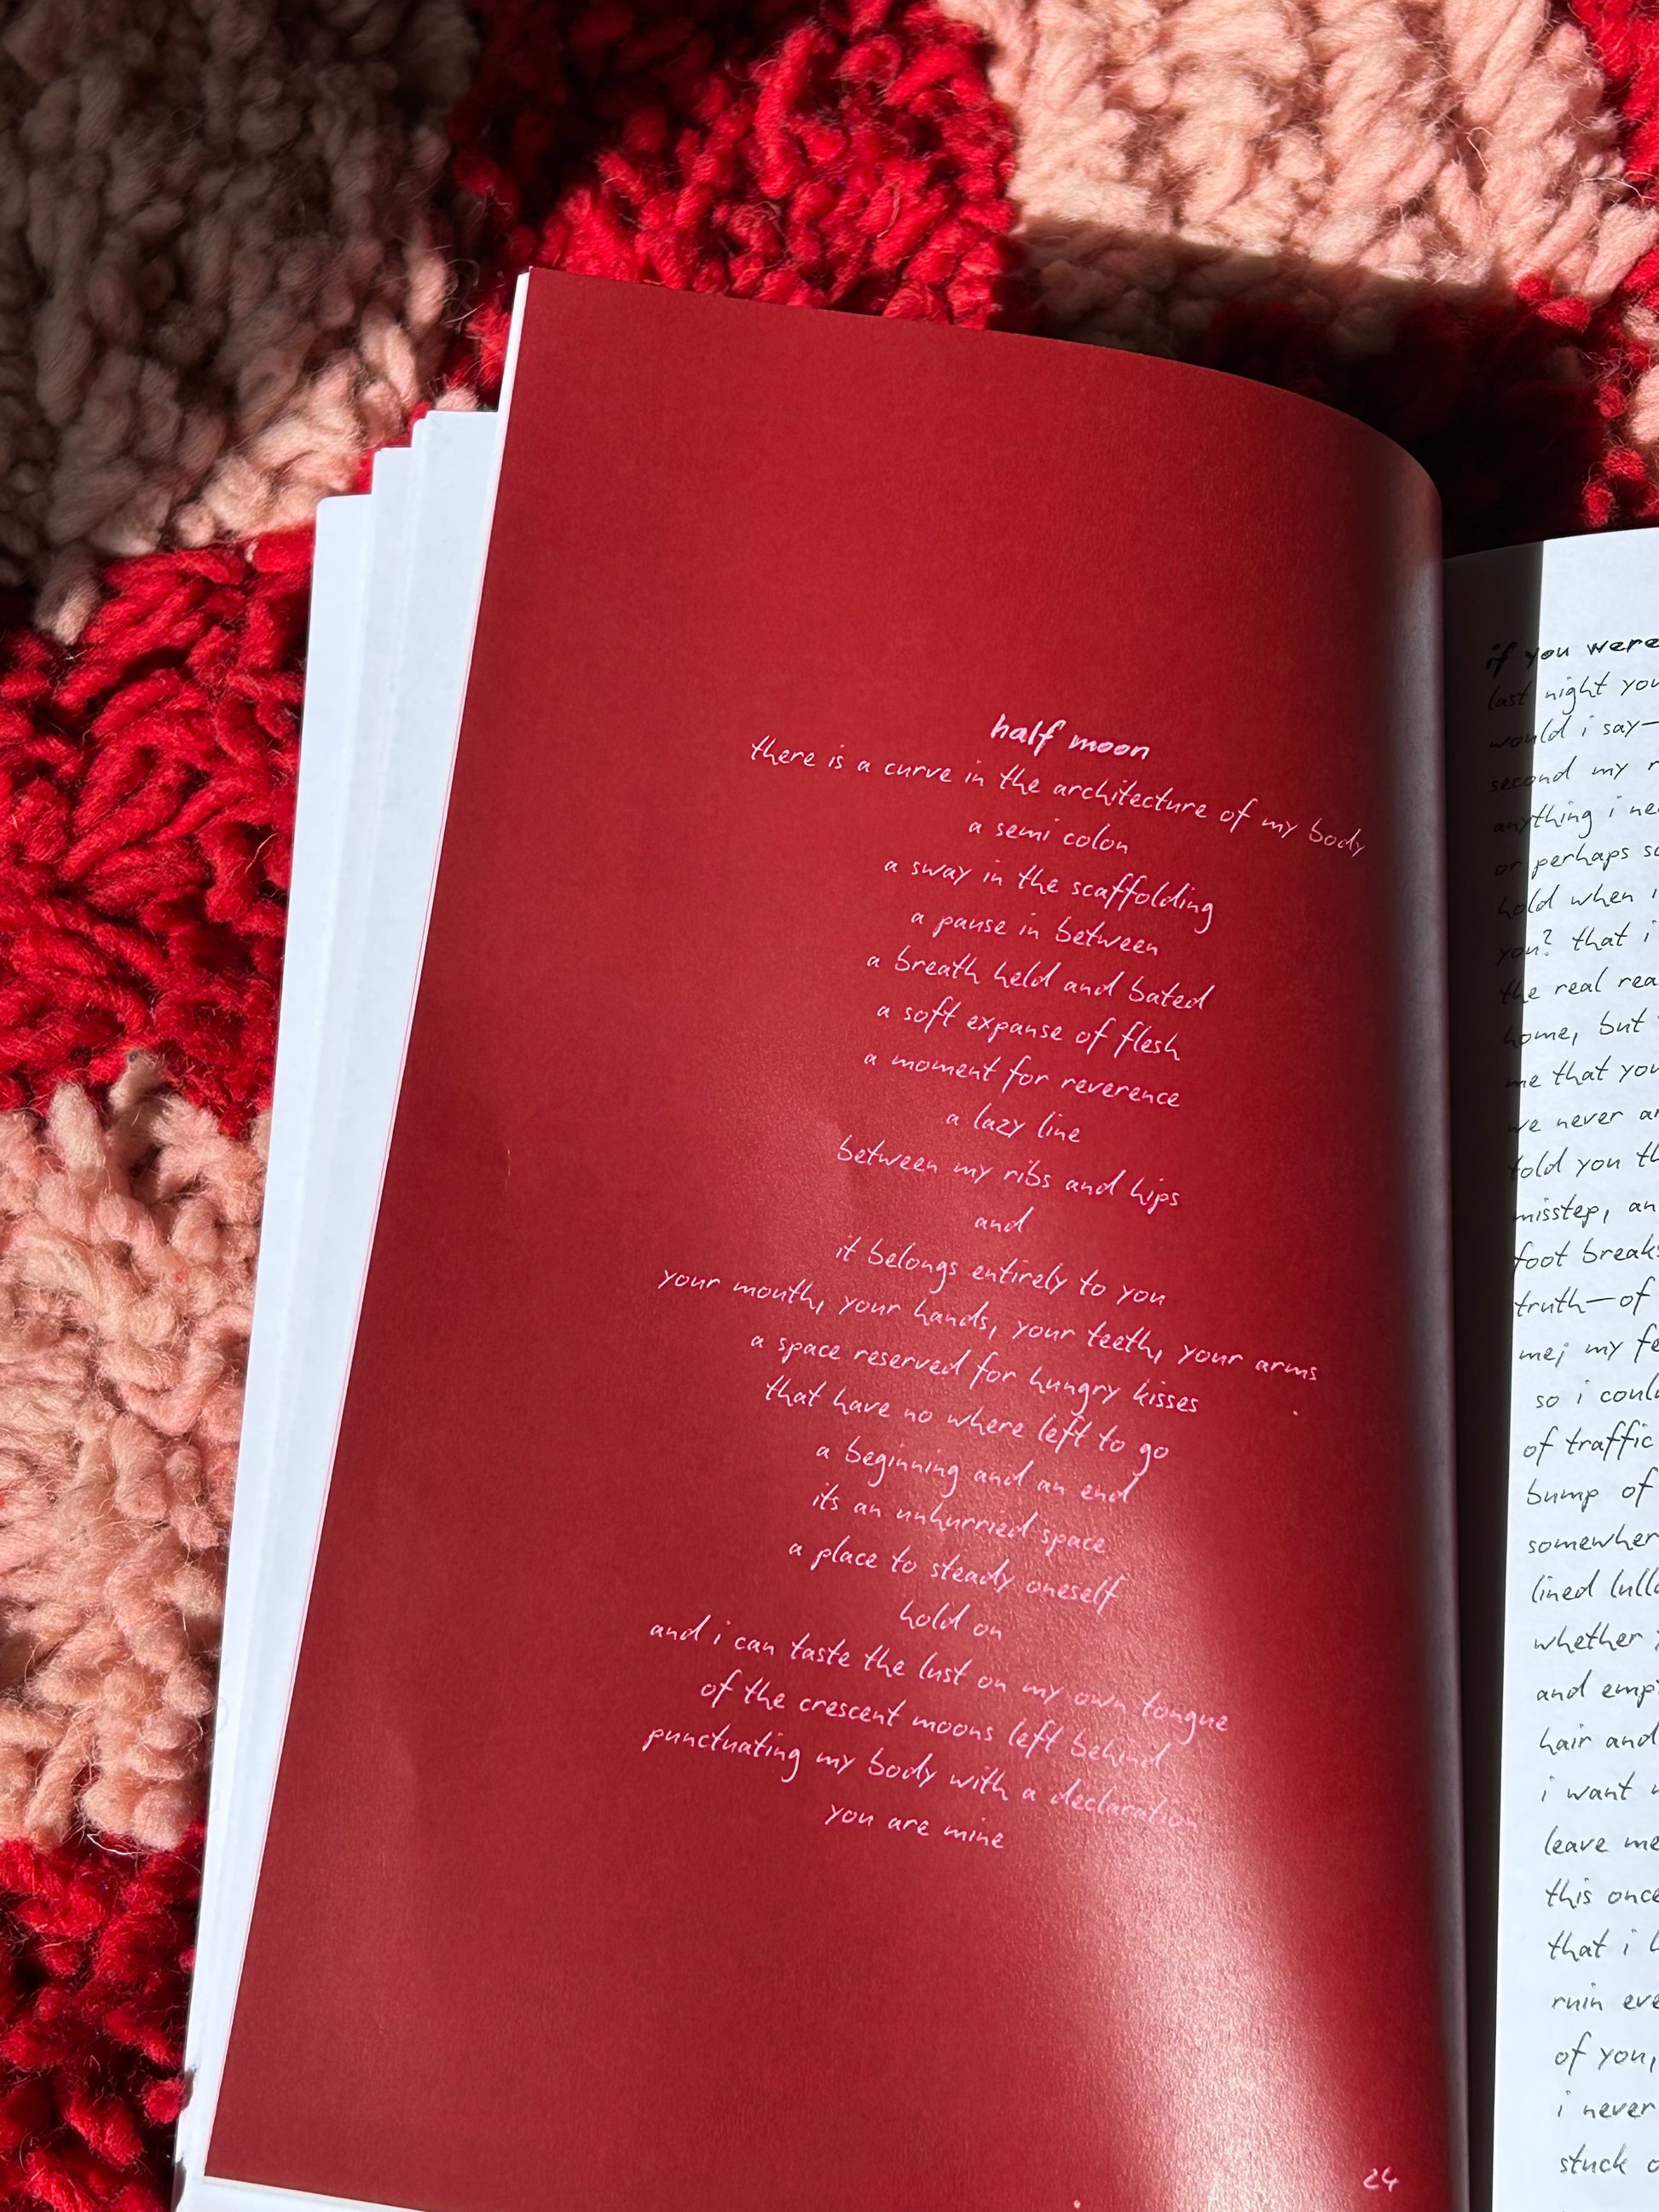 half moon
there is a curve in the architecture of my body
a semi colon
a sway in the scaffolding
a pause in between
a breath held and bated
a soft expanse of flesh
a moment for reverence
a lazy line
between my ribs and hips
and
it belongs entirely to you
your mouth, your hands, your teeth, your arms
a space reserved for hungry kisses
that have no where left to go
a beginning and an end
its an unhurried space
a place to steady oneself
hold on
and i can taste the lust on my own tongue
of the crescent moons left behind
punctuating my body with a declaration
you are mine
24
if you were
last night you
would i say—
second my
anything i
or perhaps
hold when
you? that i
the real
home, but
me that you
we never
told you
misstep, an
foot break
truth—of
me; my
so i coul
of traffic
bump of
somewher
lined
whether
and
hair and
i want
leave me
this once
that i
ruin
of you,
i never
stuck